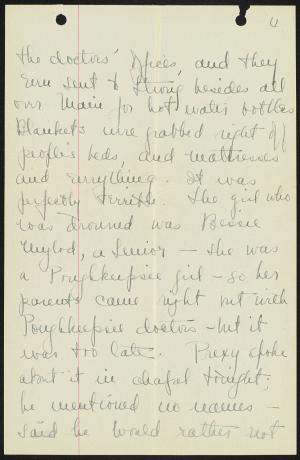 4
the doctors' offices, and they
even sent to Strong besides all
over Main for hot water bottles
Blankets were grabbed right off
people's beds, and mattresses
and everything. It was
perfectly terrible. The girl who
was drowned was Bessie
a Senior – she was
a Poughkeepsie girl – so her
parents came right out with
Poughkeepsie doctors – but it
was too late. Prexy spoke
about it in chapel tonight;
he mentioned no names –
said he would rather not